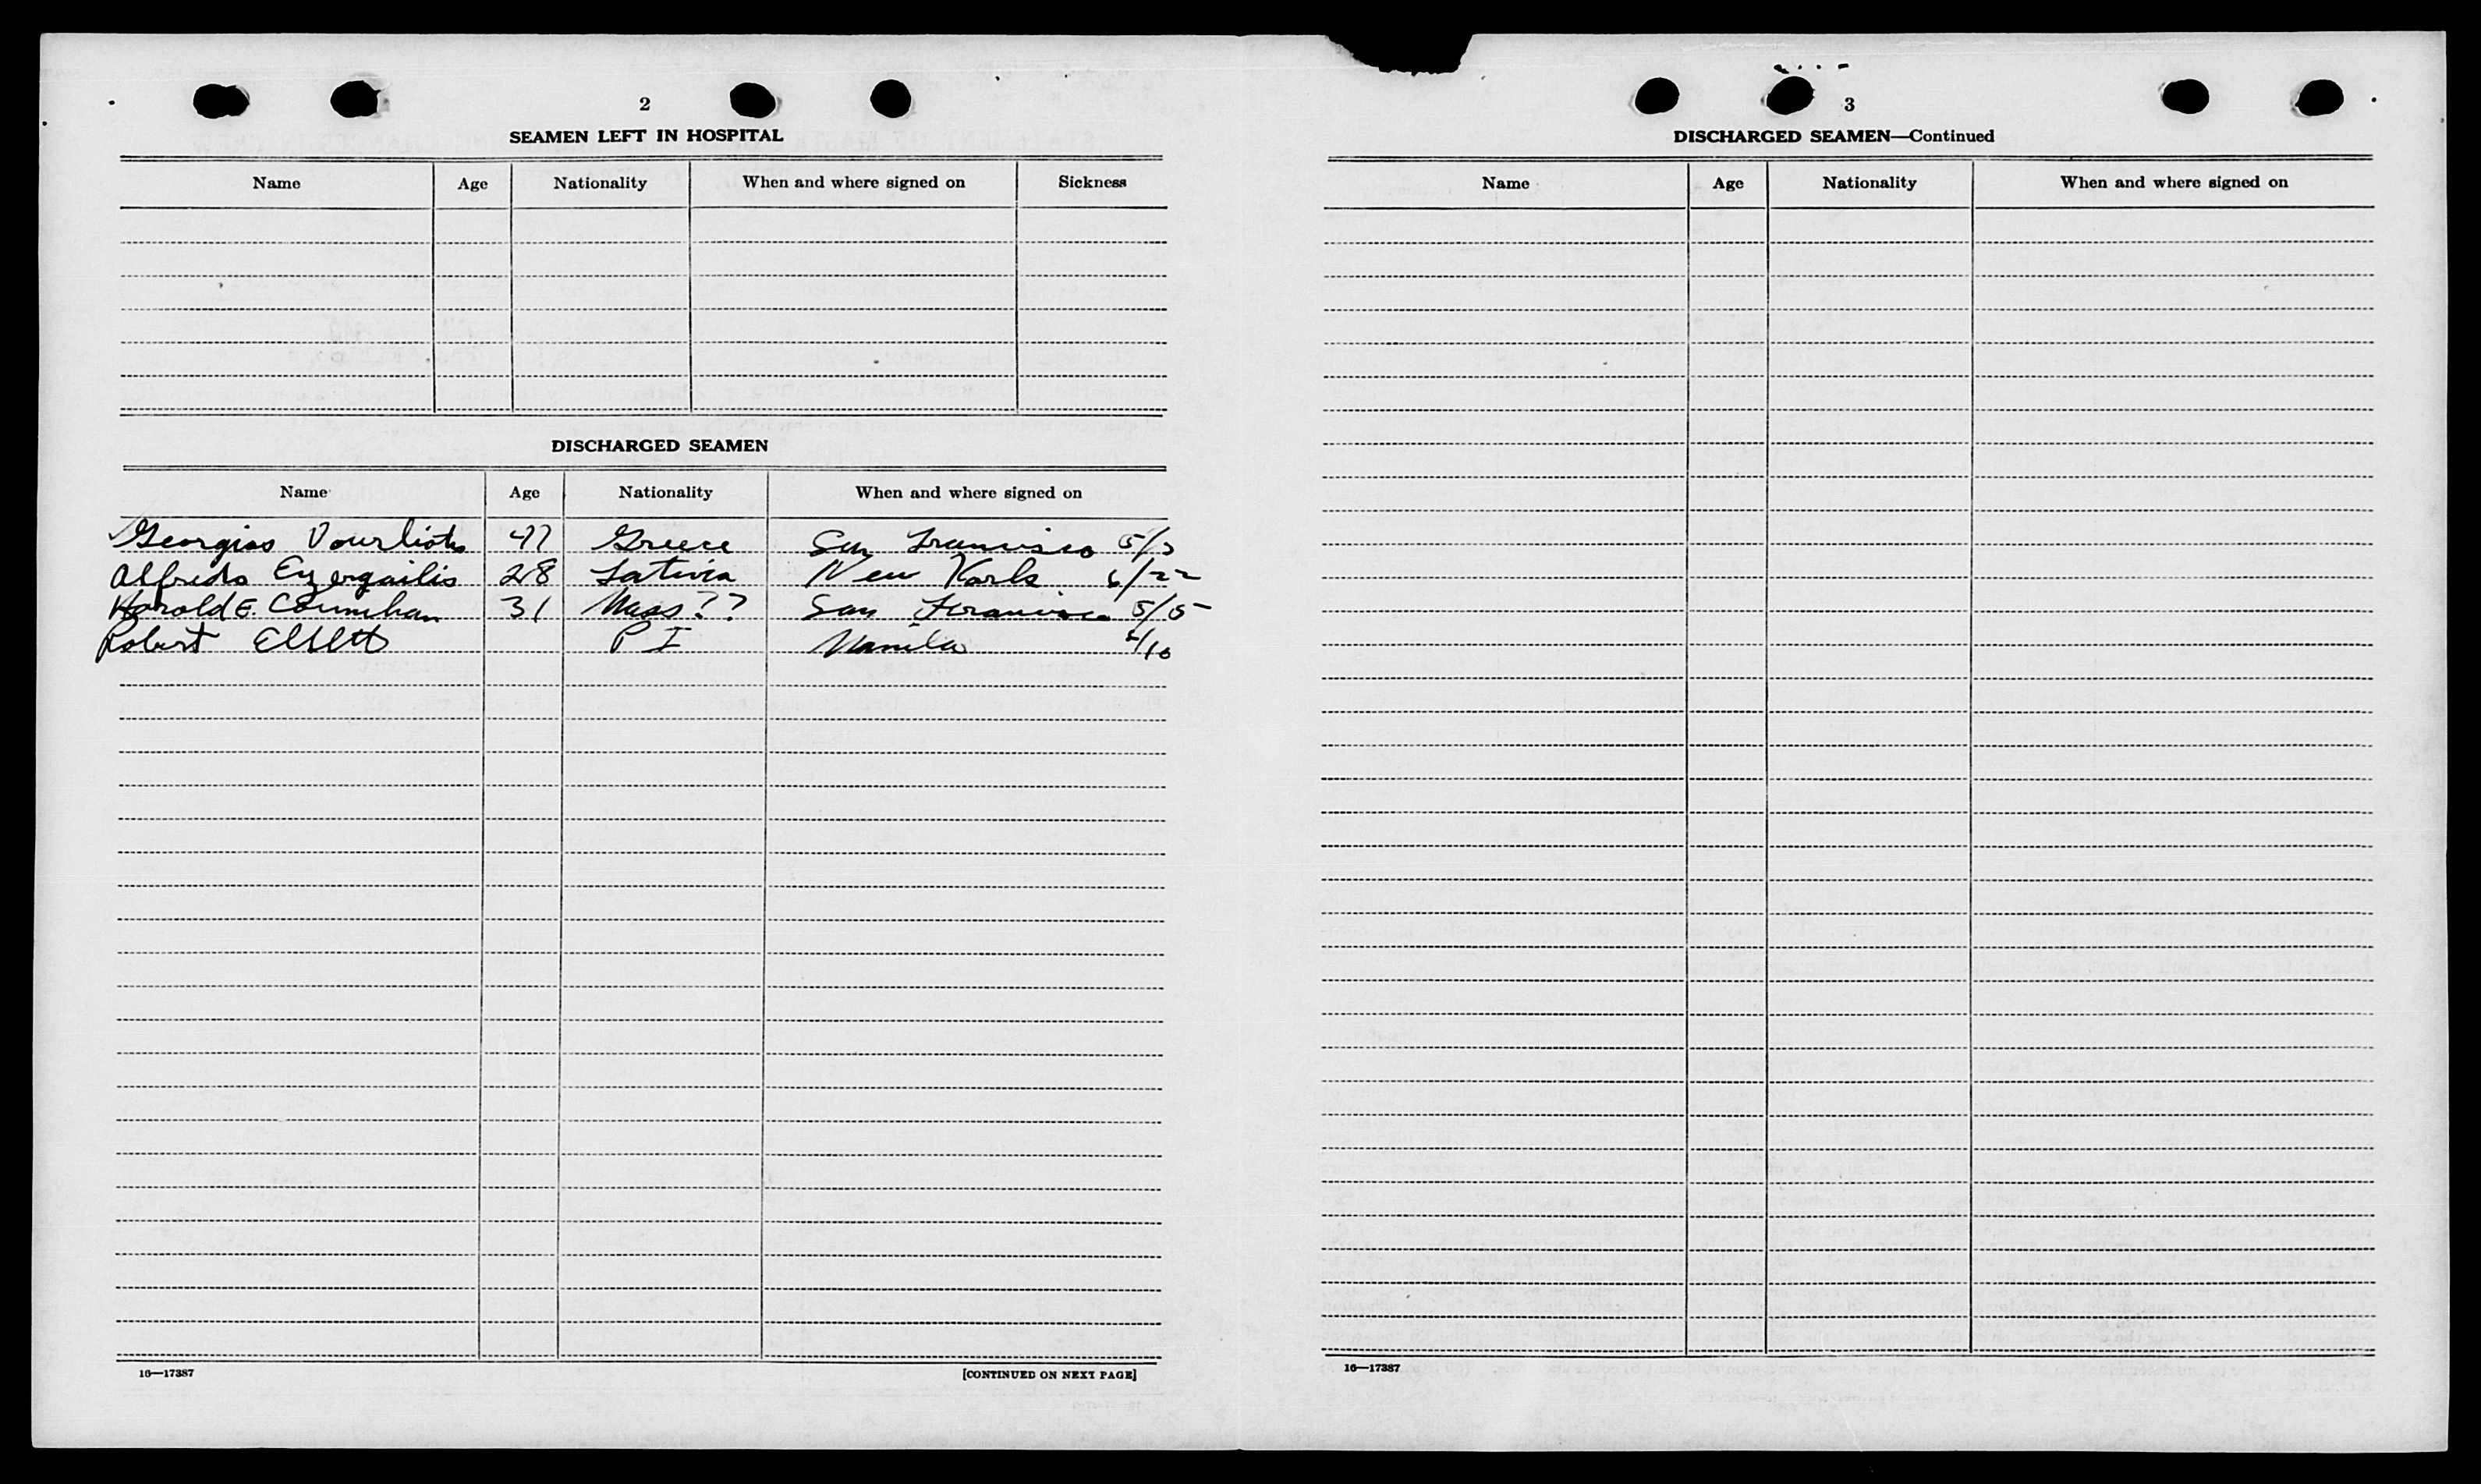 2
SEAMEN LEFT IN HOSPITAL
Name Age Nationality When and where signed on Sickness
DISCHARGED SEAMEN
Name Age Nationality When and where signed on
Georgios Vourliotis 47 Greece San Francisco 5/5
Alfreds Ezergailis 28 Latvia New York 6/22
Harold E. Counihan 31 Mass?? San Francisco 5/5
Robert P I Manila /10
16—17387 [CONTINUED ON NEXT PAGE]
3
DISCHARGED SEAMEN—Continued
Name Age Nationality When and where signed on
16—17387